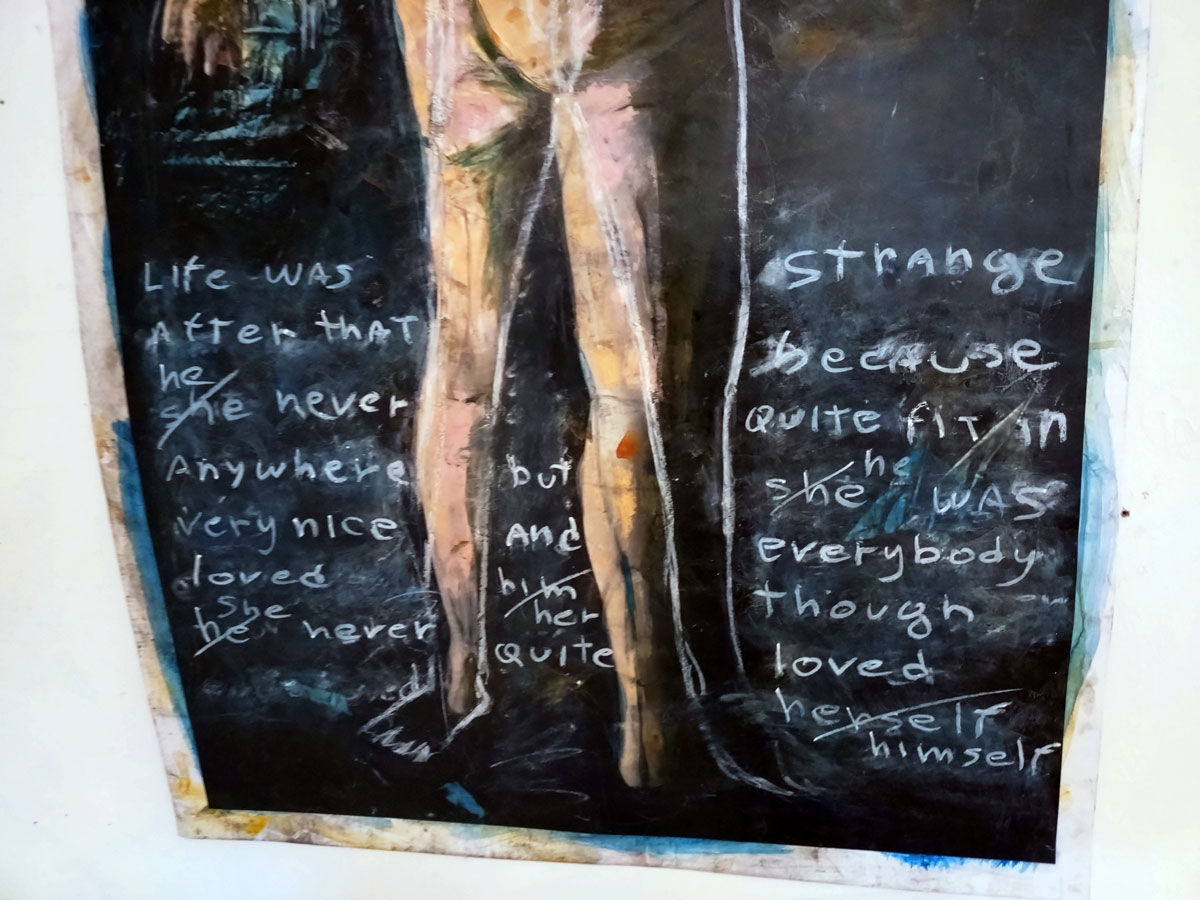 Life was strange
After that because
he
she never quite fit in
he
Anywhere but she was
very nice and everybody
loved him though
she her
he never quite loved
herself
himself